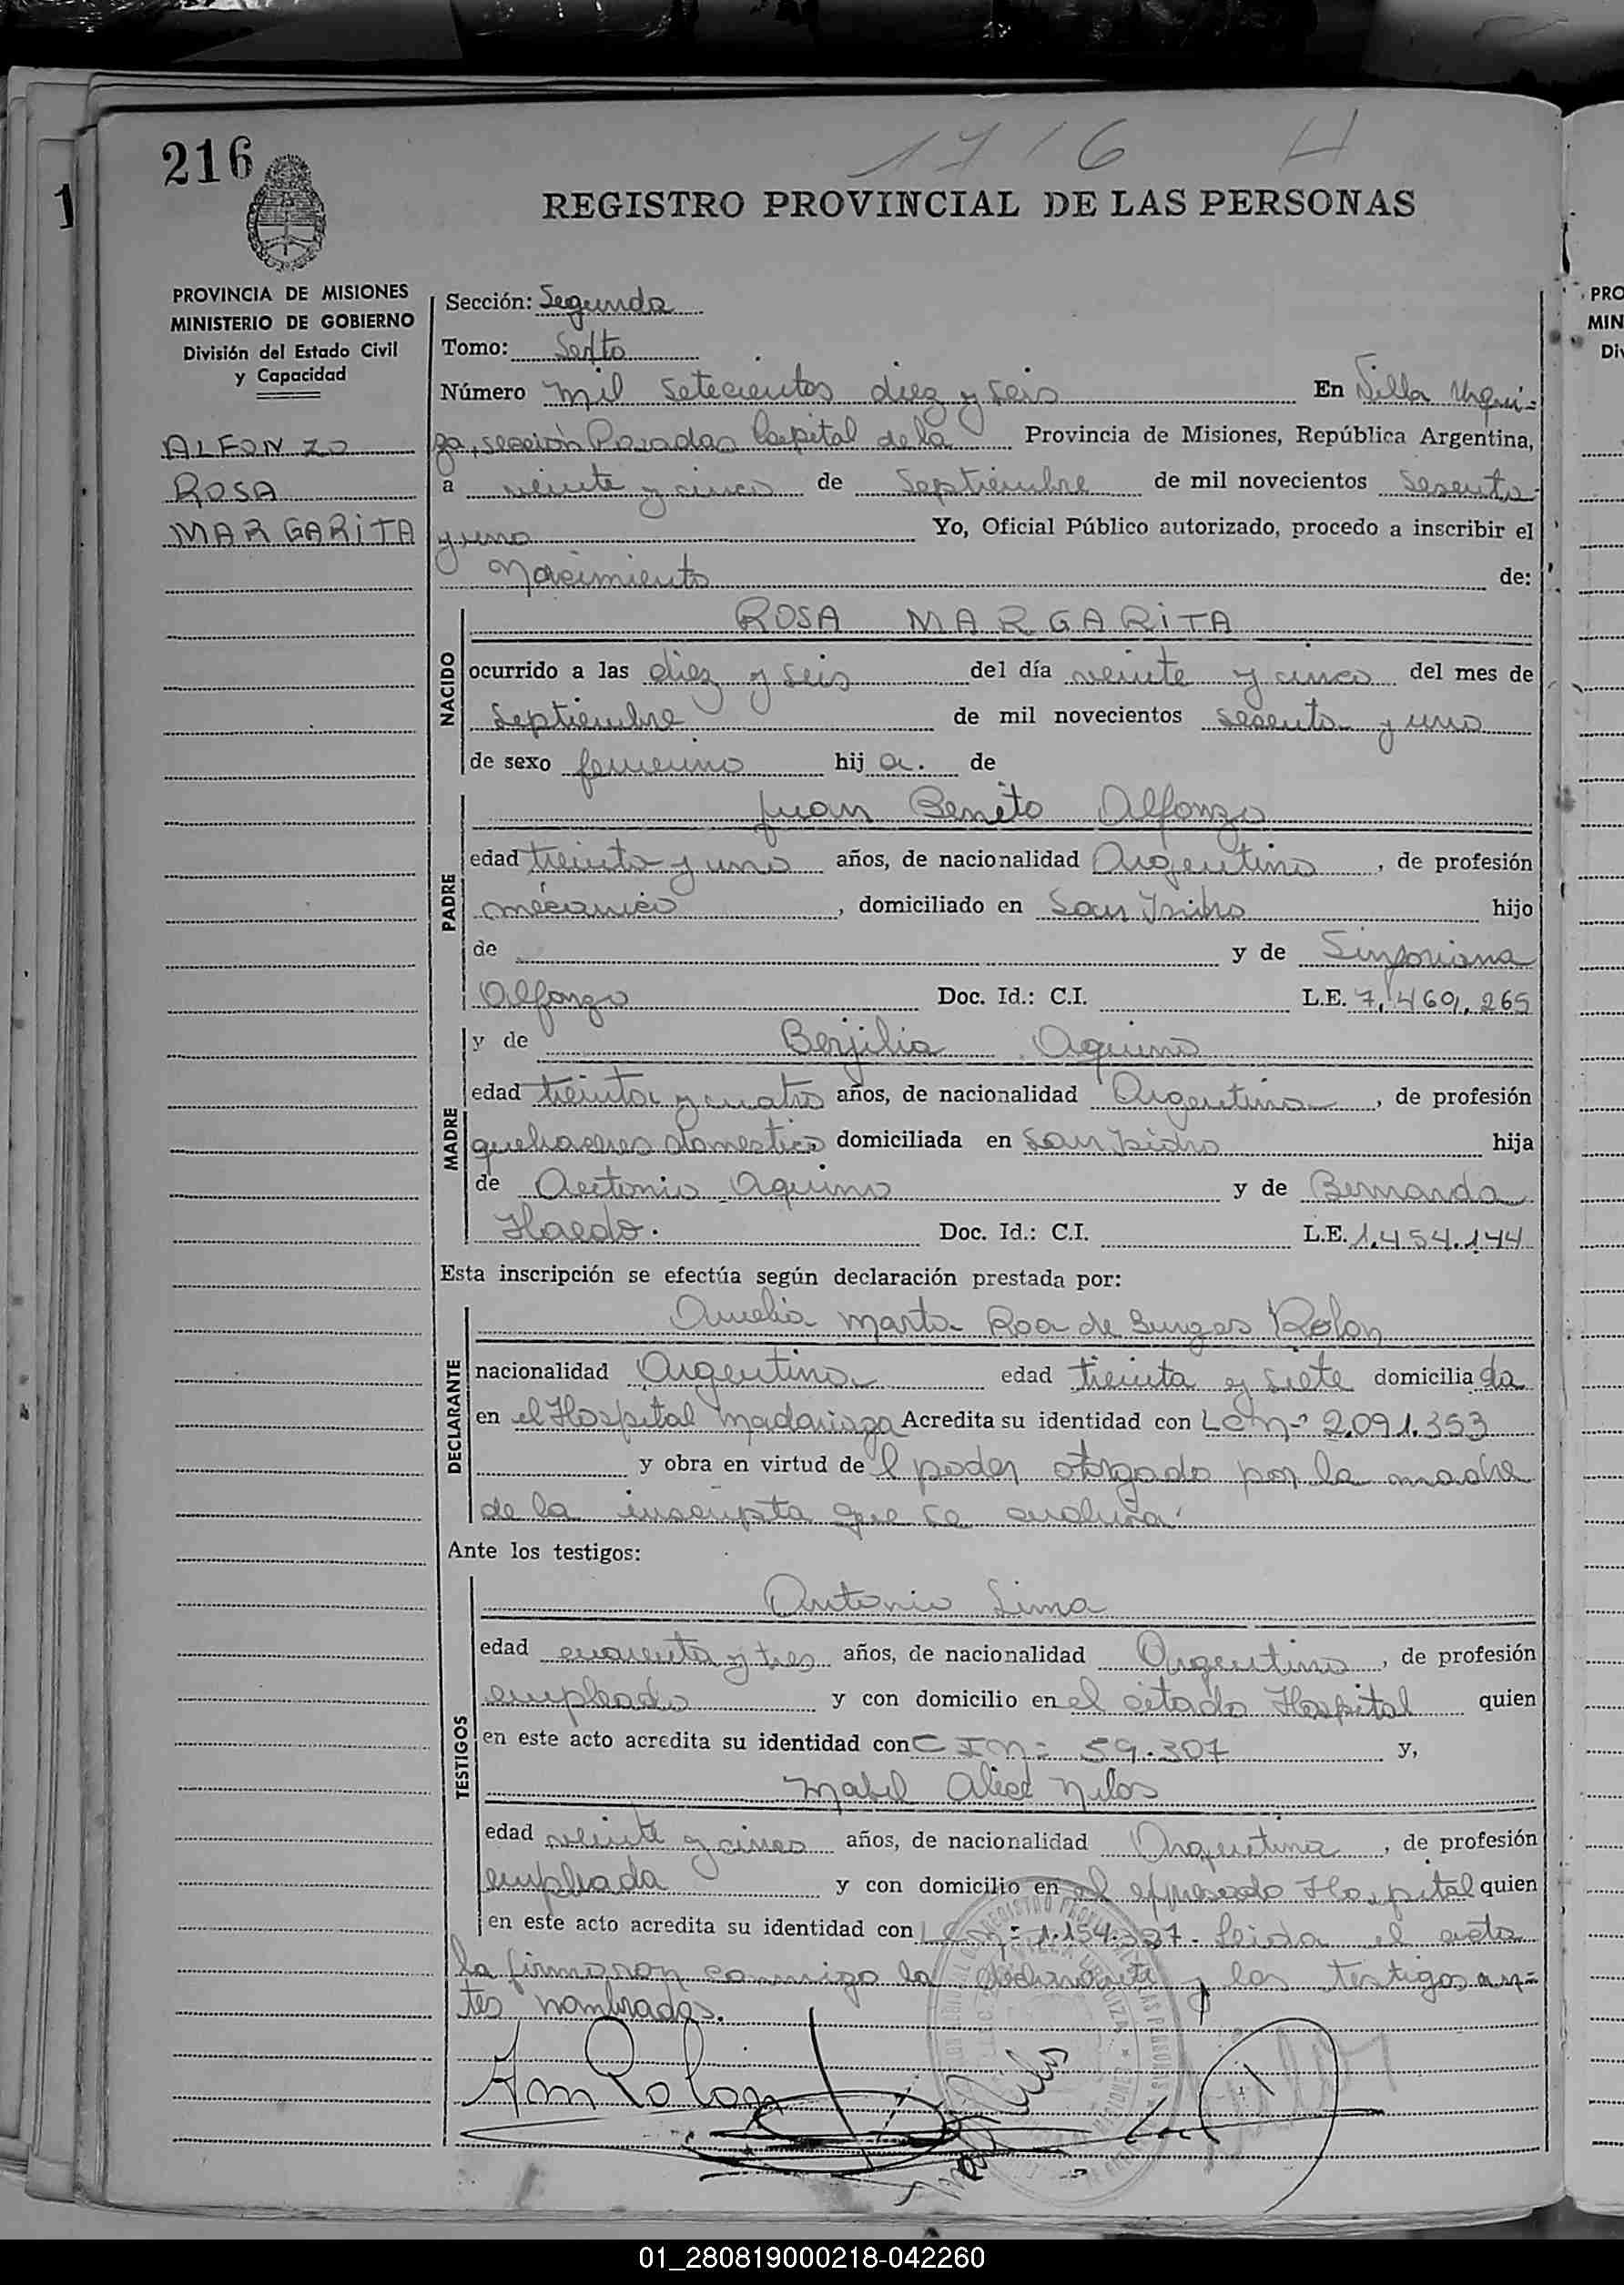 216
1716 H
REGISTRO PROVINCIAL DE LAS PERSONAS
PROVINCIA DE MISIONES
MINISTERIO DE GOBIERNO
División del Estado Civil
y Capacidad
ALFONZO
ROSA
MARGARITA
Sección: Segunda
Tomo: Sexto
Número mil setecientos diez y seis En Villa Urqui-
za, sección Posadas Capital de la Provincia de Misiones, República Argentina,
a veinte y cinco de Septiembre de mil novecientos sesenta
y uno Yo, Oficial Público autorizado, procedo a inscribir el
Nacimiento de:
NACIDO
ROSA MARGARITA
ocurrido a las diez y seis del día veinte y cinco del mes de
Septiembre de mil novecientos sesenta y uno
de sexo femenino hij a. de
PADRE
Juan Benito Alfonzo
edad treinta y uno años, de nacionalidad Argentino, de profesión
mécanico, domiciliado en San Isidro hijo
de y de Sinforiana
Alfonzo Doc. Id.: C.I. L.E. 7.460.265
MADRE
y de Berjilia Aquino
edad treinta y cuatro años, de nacionalidad Argentina, de profesión
quehaceres domestico domiciliada en San Isidro hija
de Antonio Aquino y de Bernarda
Haedo. Doc. Id.: C.I. L.E. 1.454.144
Esta inscripción se efectúa según declaración prestada por:
DECLARANTE
Amelia Marta Roa de Burgos Rolon
nacionalidad Argentina edad treinta y siete domicilia da
en el Hospital Madariaga Acredita su identidad con LC Nº 2.091.353
y obra en virtud de l poder otorgado por la madre
de la inscripta que se archiva.
Ante los testigos:
TESTIGOS
Antonio Lima
edad cuarenta y tres años, de nacionalidad Argentino, de profesión
empleado y con domicilio en el citado Hospital quien
en este acto acredita su identidad con C I Nº 59.307 y,
Mabel Nelos
edad veinte y cinco años, de nacionalidad Argentina, de profesión
empleada y con domicilio en el expresado Hospital quien
en este acto acredita su identidad con LC Nº 1.154.327. Leida el acta
la firmaron conmigo la declarante y los testigos an-
tes nombrados.
Am Rolon
01_280819000218-042260